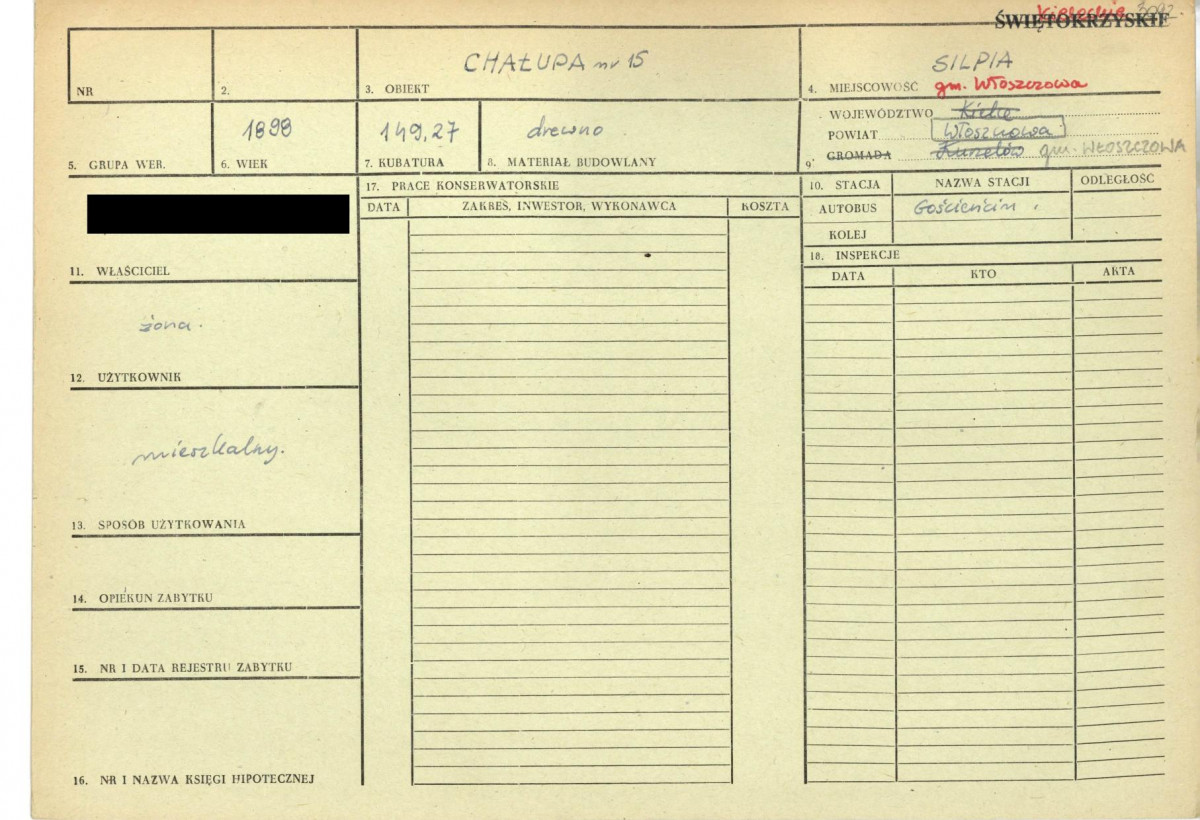 ŚWIĘTOKRZYSKIE
NR
2.
CHAŁUPA nr 15
3. OBIEKT
SILPIA
4. MIEJSCOWOŚĆ gm. Włoszczowa
5. GRUPA WER.
1898
6. WIEK
149,27
7. KUBATURA
drewno
8. MATERIAŁ BUDOWLANY
WOJEWÓDZTWO Kielce
POWIAT Włoszczowa
9. GROMADA Kurzelów gm. WŁOSZCZOWA
11. WŁAŚCICIEL
żona.
12. UŻYTKOWNIK
mieszkalny.
13. SPOSÓB UŻYTKOWANIA
14. OPIEKUN ZABYTKU
15. NR I DATA REJESTRU ZABYTKU
16. NR I NAZWA KSIĘGI HIPOTECZNEJ
17. PRACE KONSERWATORSKIE
DATA ZAKRES, INWESTOR, WYKONAWCA KOSZTA
10. STACJA NAZWA STACJI ODLEGŁOŚĆ
AUTOBUS Gościencin
KOLEJ
18. INSPEKCJE
DATA KTO AKTA